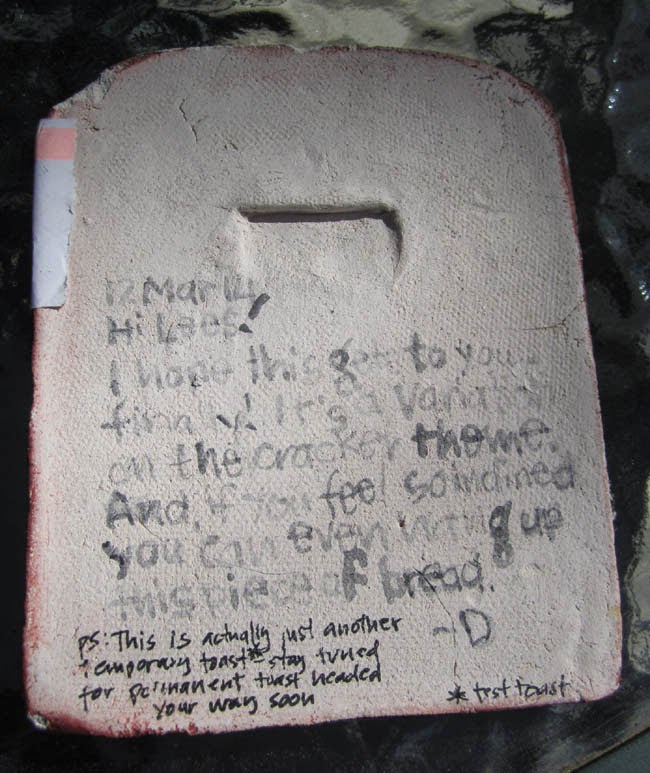 12 Mar 14
Hi Lees!
I hope this gets to you
finally! It's a variation
on the cracker theme.
And, if you feel so inclined
you can even hang up
this piece of bread.
-D
PS: This is actually just another
temporary toast* stay tuned
for permanent toast headed
your way soon
* test toast